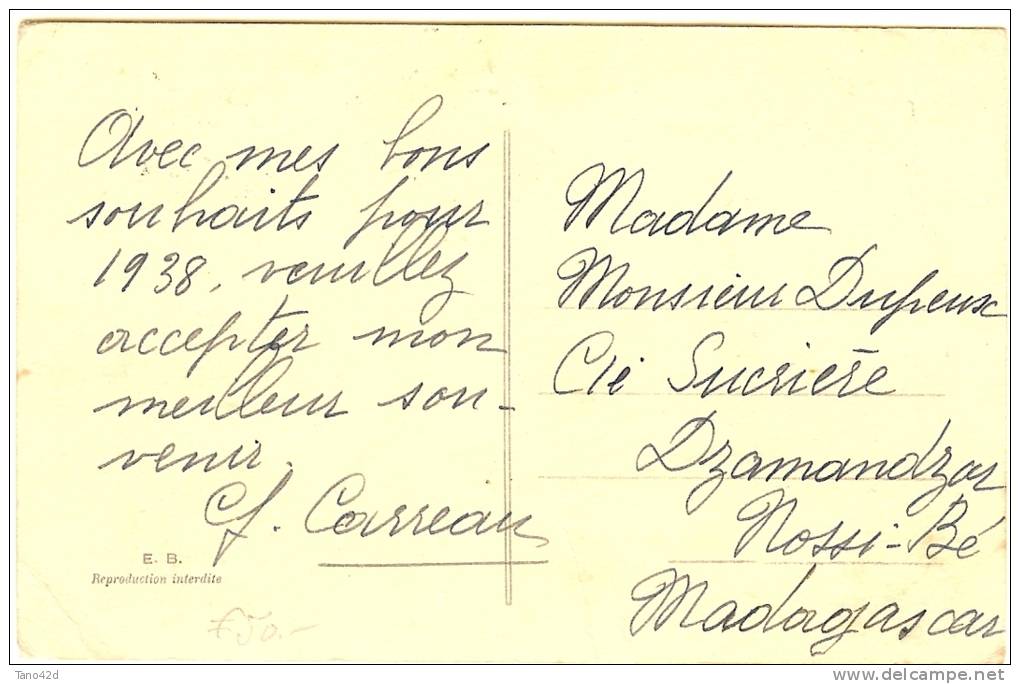 Avec mes bons
souhaits pour
1938, veuillez
accepter mon
meilleur sou-
venir.
Carreau
E. B.
Reproduction interdite
Madame
Monsieur Dupeux
Cie Sucrière
Dzamandzar
Nossi-Bé
Madagascar
Tano42d
www.delcampe.net